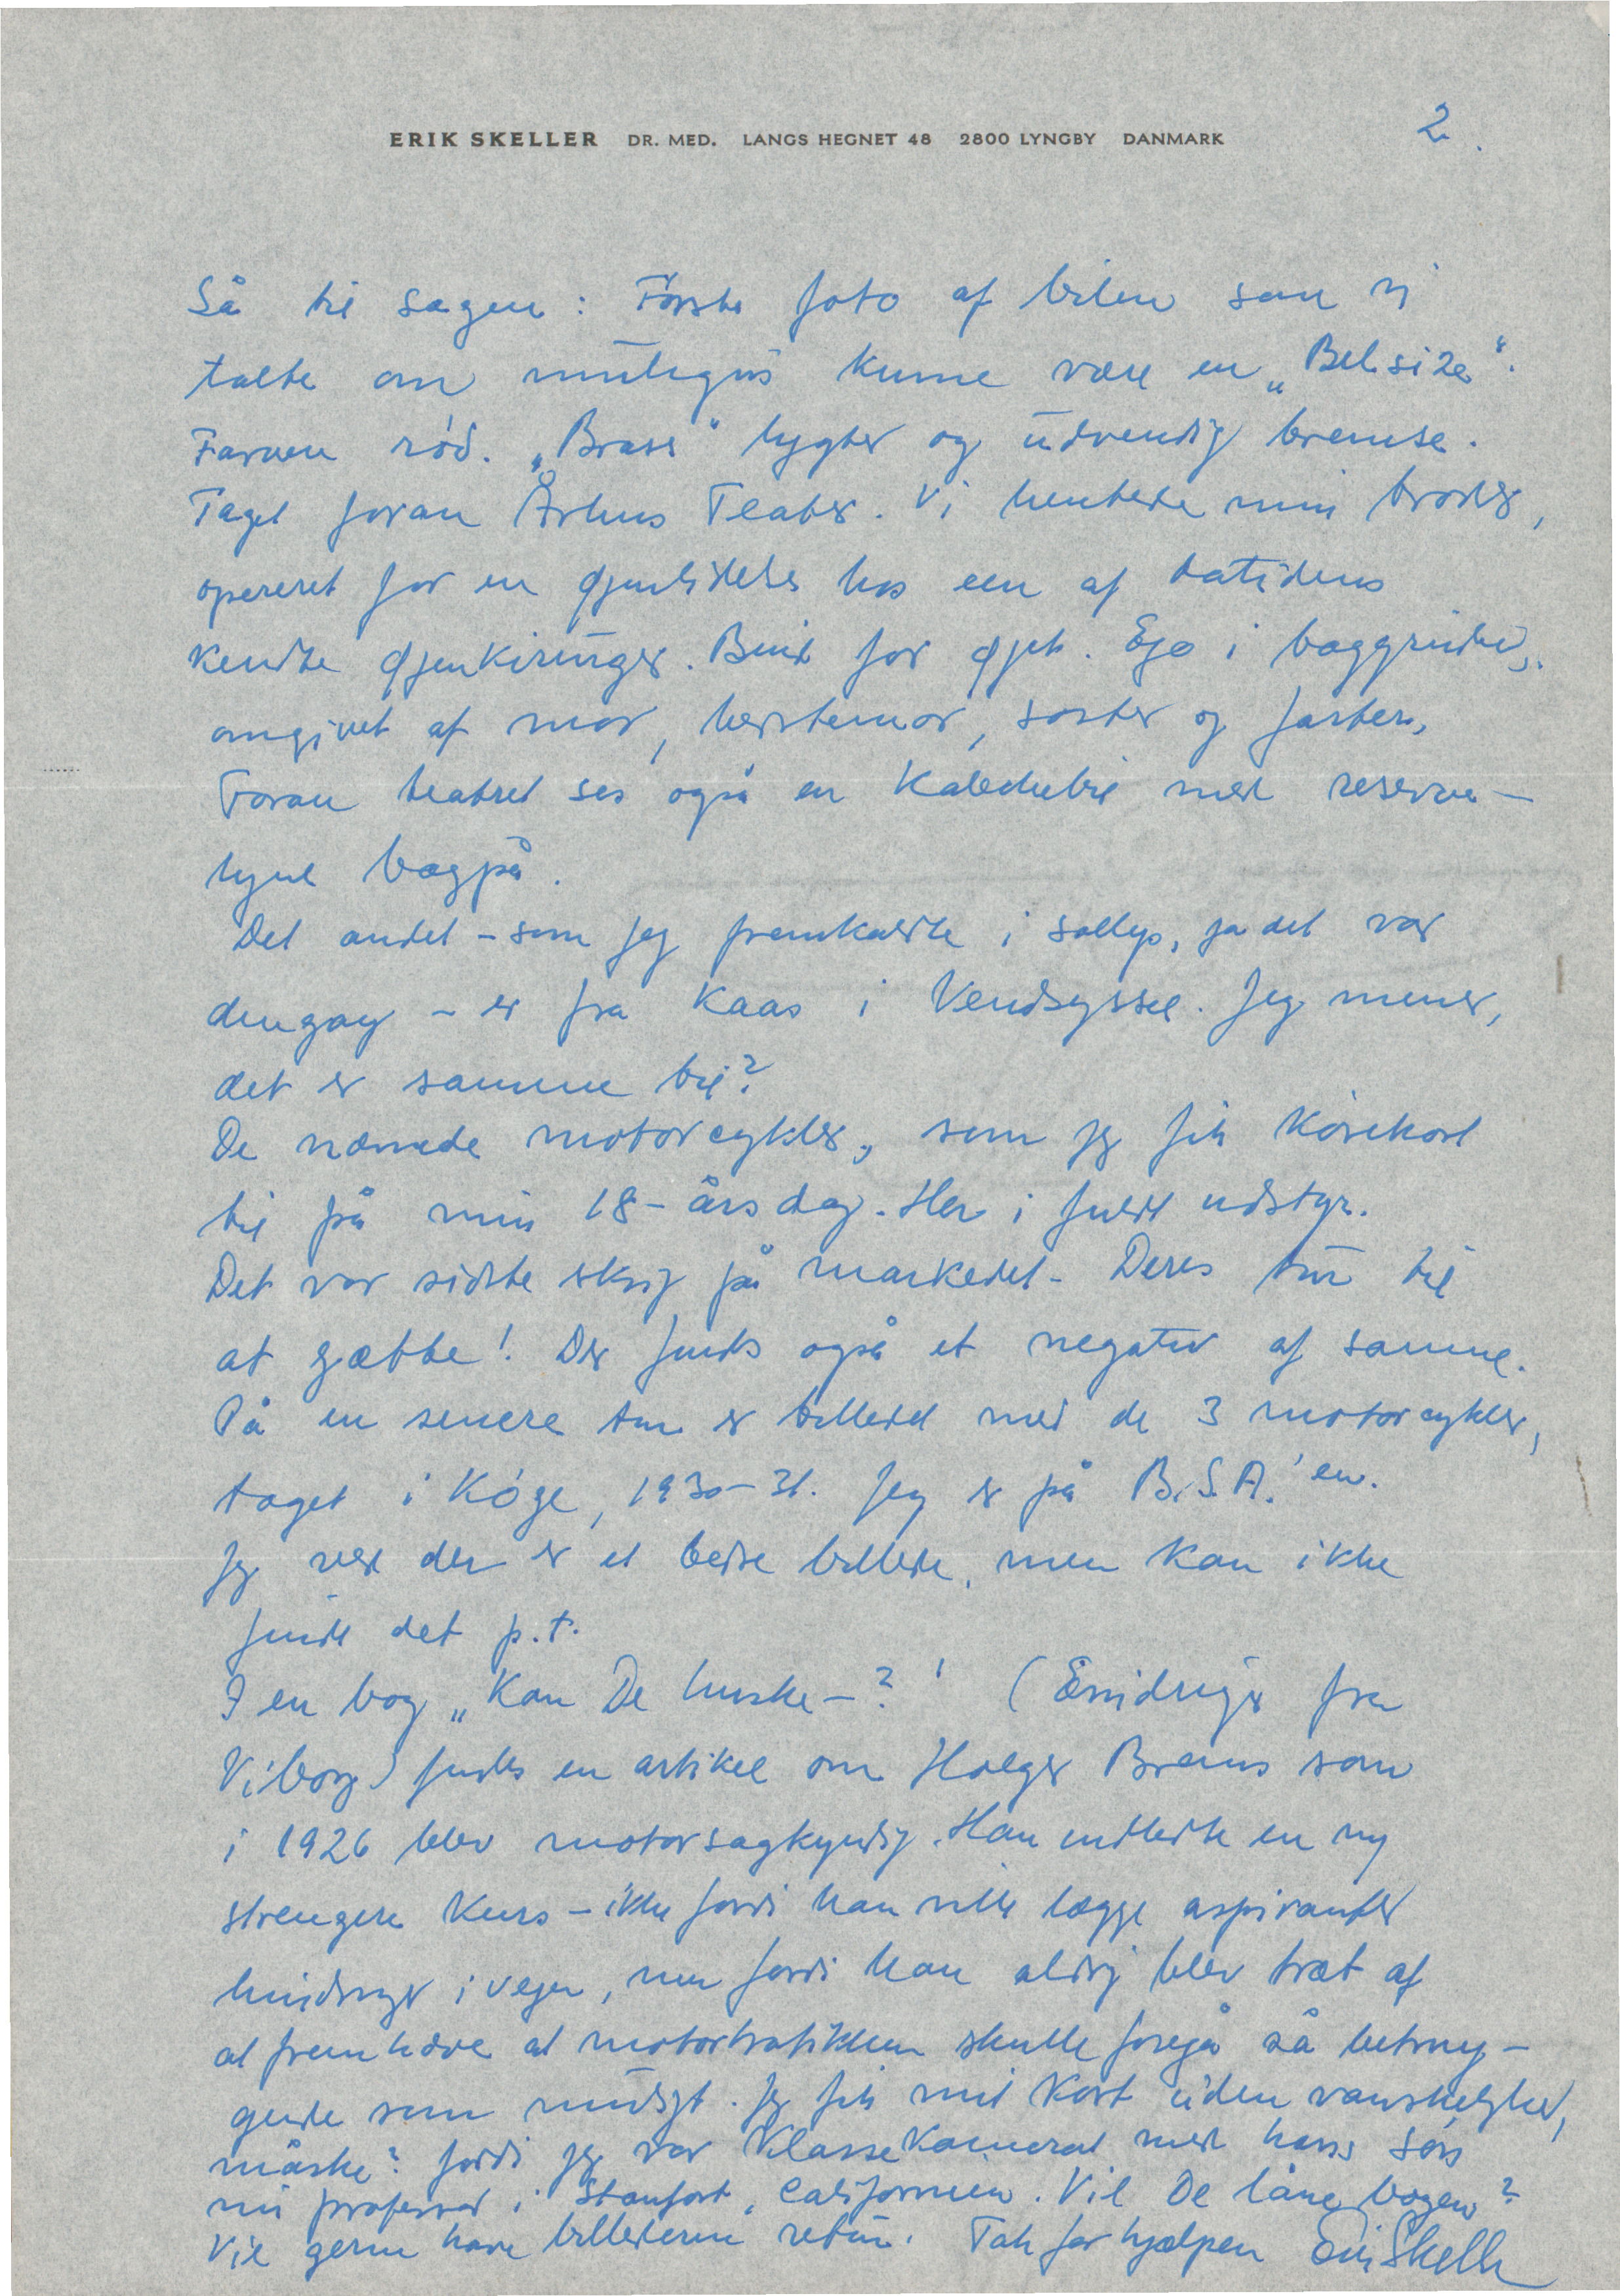 ERIK SKELLER DR. MED. LANGS HEGNET 48 2800 LYNGBY DANMARK
2.
Så til sagen: Første foto af bilen som vi
talte om muligvis kunne være en „Belsize“.
Farven rød. „Brass“ lygter og udvendig bremse.
Taget foran Århus Teater. Vi hentede min broder,
opereret for en øjenlidelse hos een af datidens
kendte øjenkirurger. Bind for øjet. Ego i baggrunden,
omgivet af mor, bedstemor, søster og faster.
Foran teatret ses også en Kalechebil med reserve-
hjul bagpå.
Det andet - som jeg fremkaldte i sollys, ja det var
dengang - er fra Kaas i Vendsyssel. Jeg mener,
det er samme bil?
De nævnede motorcykler, som jeg fik kørekort
til på min 18-års dag. Her i fuldt udstyr.
Det var sidste skrig på markedet - Deres tur til
at gætte! Der findes også et negativ af samme.
På en senere tur er billedet med de 3 motorcykler,
taget i Køge, 1930-31. Jeg er på B.S.A.'en.
Jeg ved der er et bedre billede, men kan ikke
finde det p.t.
I en bog „Kan De huske -?' (Erindringer fra
Viborg) findes en artikel om Holger Brams som
i 1926 blev motorsagkyndig. Han indledte en ny
strengere kurs - ikke fordi han ville lægge aspiranter
hindringer i vejen, men fordi han aldrig blev træt af
at fremhæve at motortrafikken skulle foregå så betryg-
gende som muligt. Jeg fik mit kort uden vanskeligheder,
måske? fordi jeg var Klassekamerat med hans søn
nu professor i Stanfort, Californien. Vil De låne bogen?
Vil gerne have billederne retur. Tak for hjælpen Erik Skeller